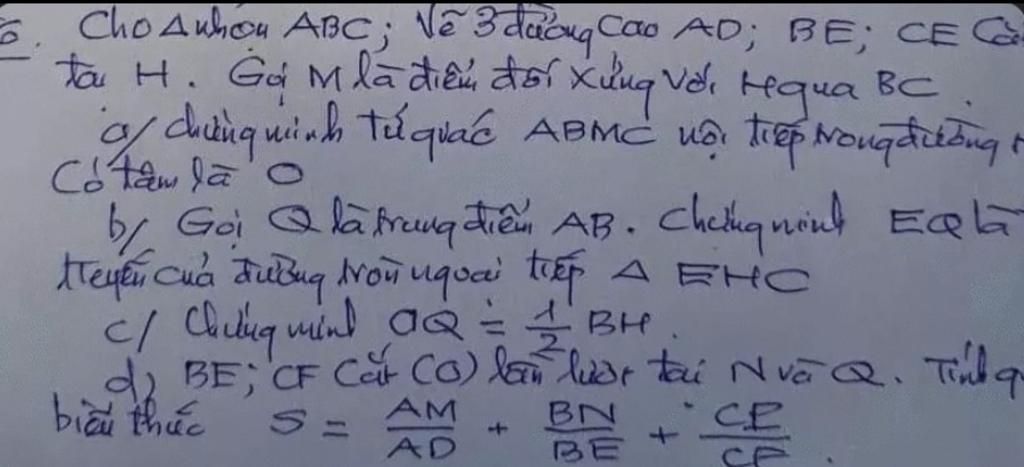 6. Cho Δ nhọn ABC; Vẽ 3 đường cao AD; BE; CE Cắ
tại H. Gọi M là điểm đối xứng với H qua BC.
a/ chứng minh Tứ giác ABMC nội tiếp trong đường t
Có tâm là O
b/ Gọi Q là trung điểm AB. Chứng minh EQ là
tuyến của đường tròn ngoại tiếp Δ EHC
c/ Chứng minh OQ = 1/2 BH.
d) BE; CF Cắt (O) lần lượt tại N và Q. Tính g
biểu thức S = AM/AD + BN/BE + CP/CF.